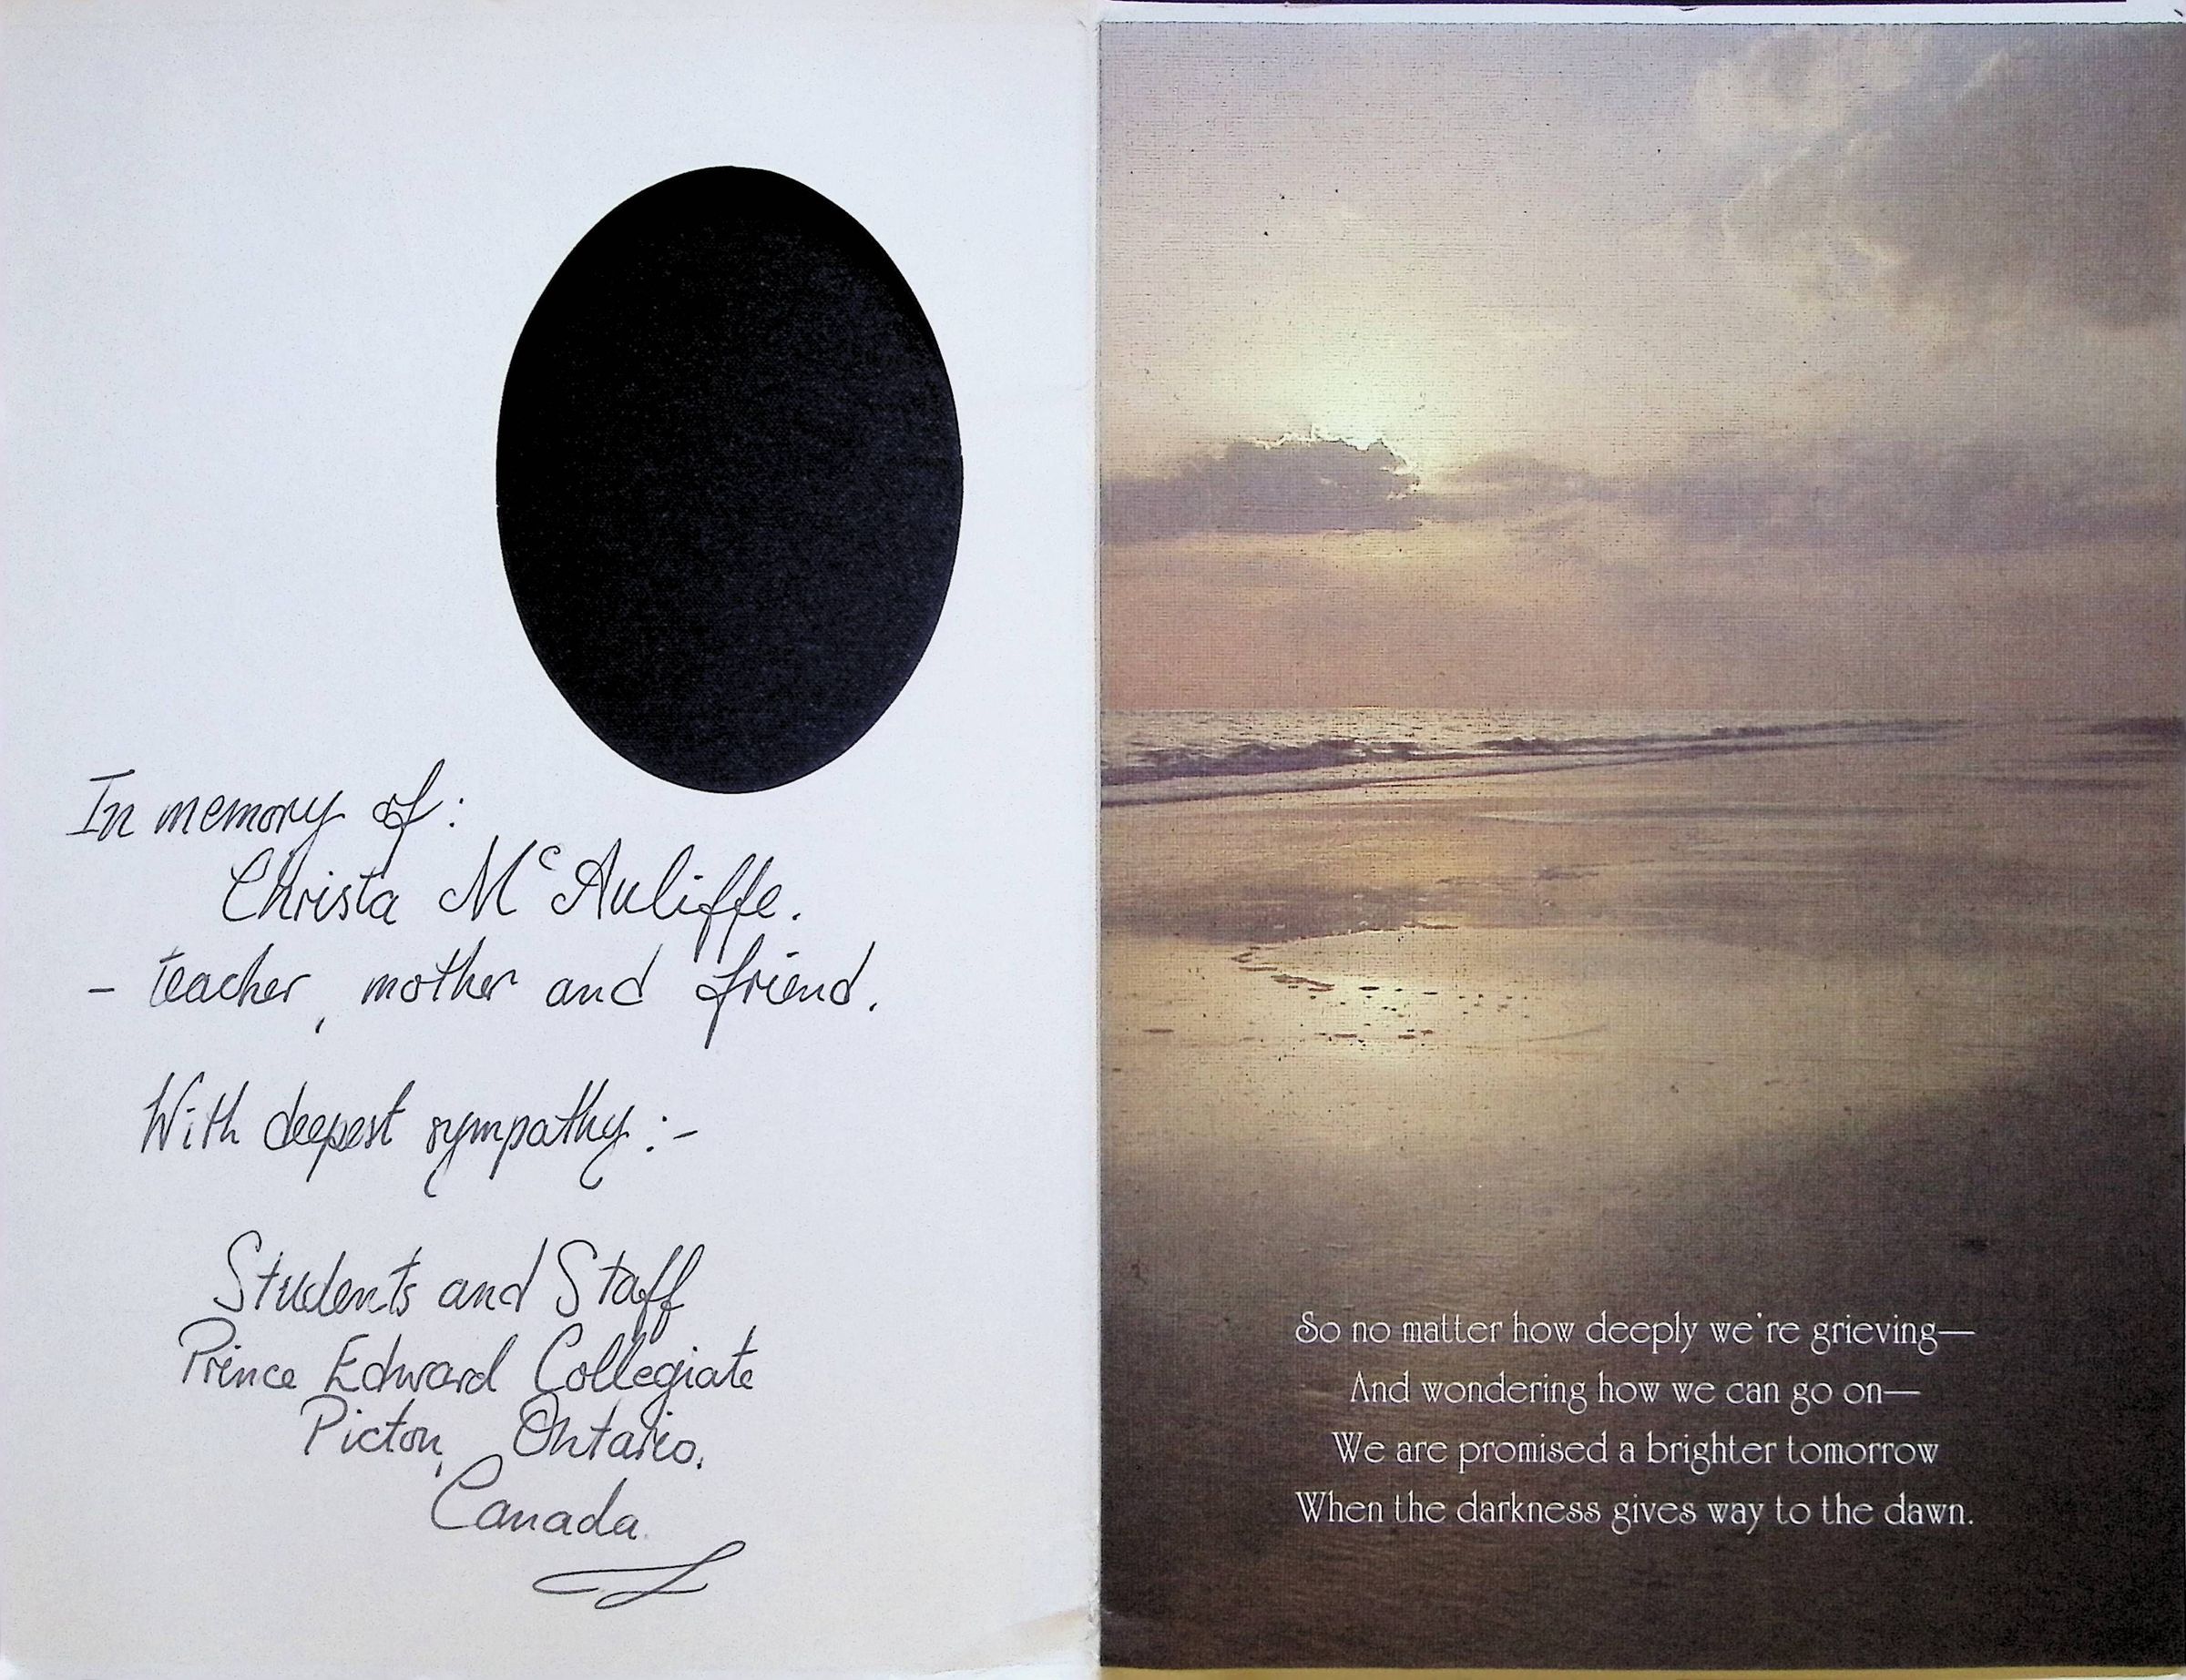 In memory of:
Christa McAuliffe.
- teacher, mother and friend.
With deepest sympathy:-
Students and Staff
Prince Edward Collegiate
Picton, Ontario.
Canada.
So no matter how deeply we're grieving—
And wondering how we can go on—
We are promised a brighter tomorrow
When the darkness gives way to the dawn.